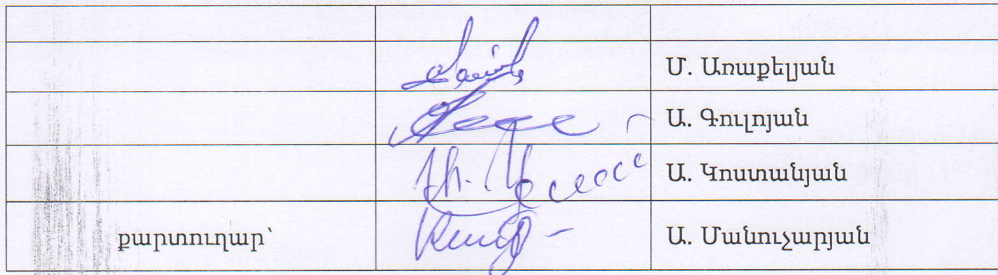 Մ. Առաքելյան
Ա. Գուլոյան
Ա. Կոստանյան
քարտուղար՝ Ա. Մանուչարյան